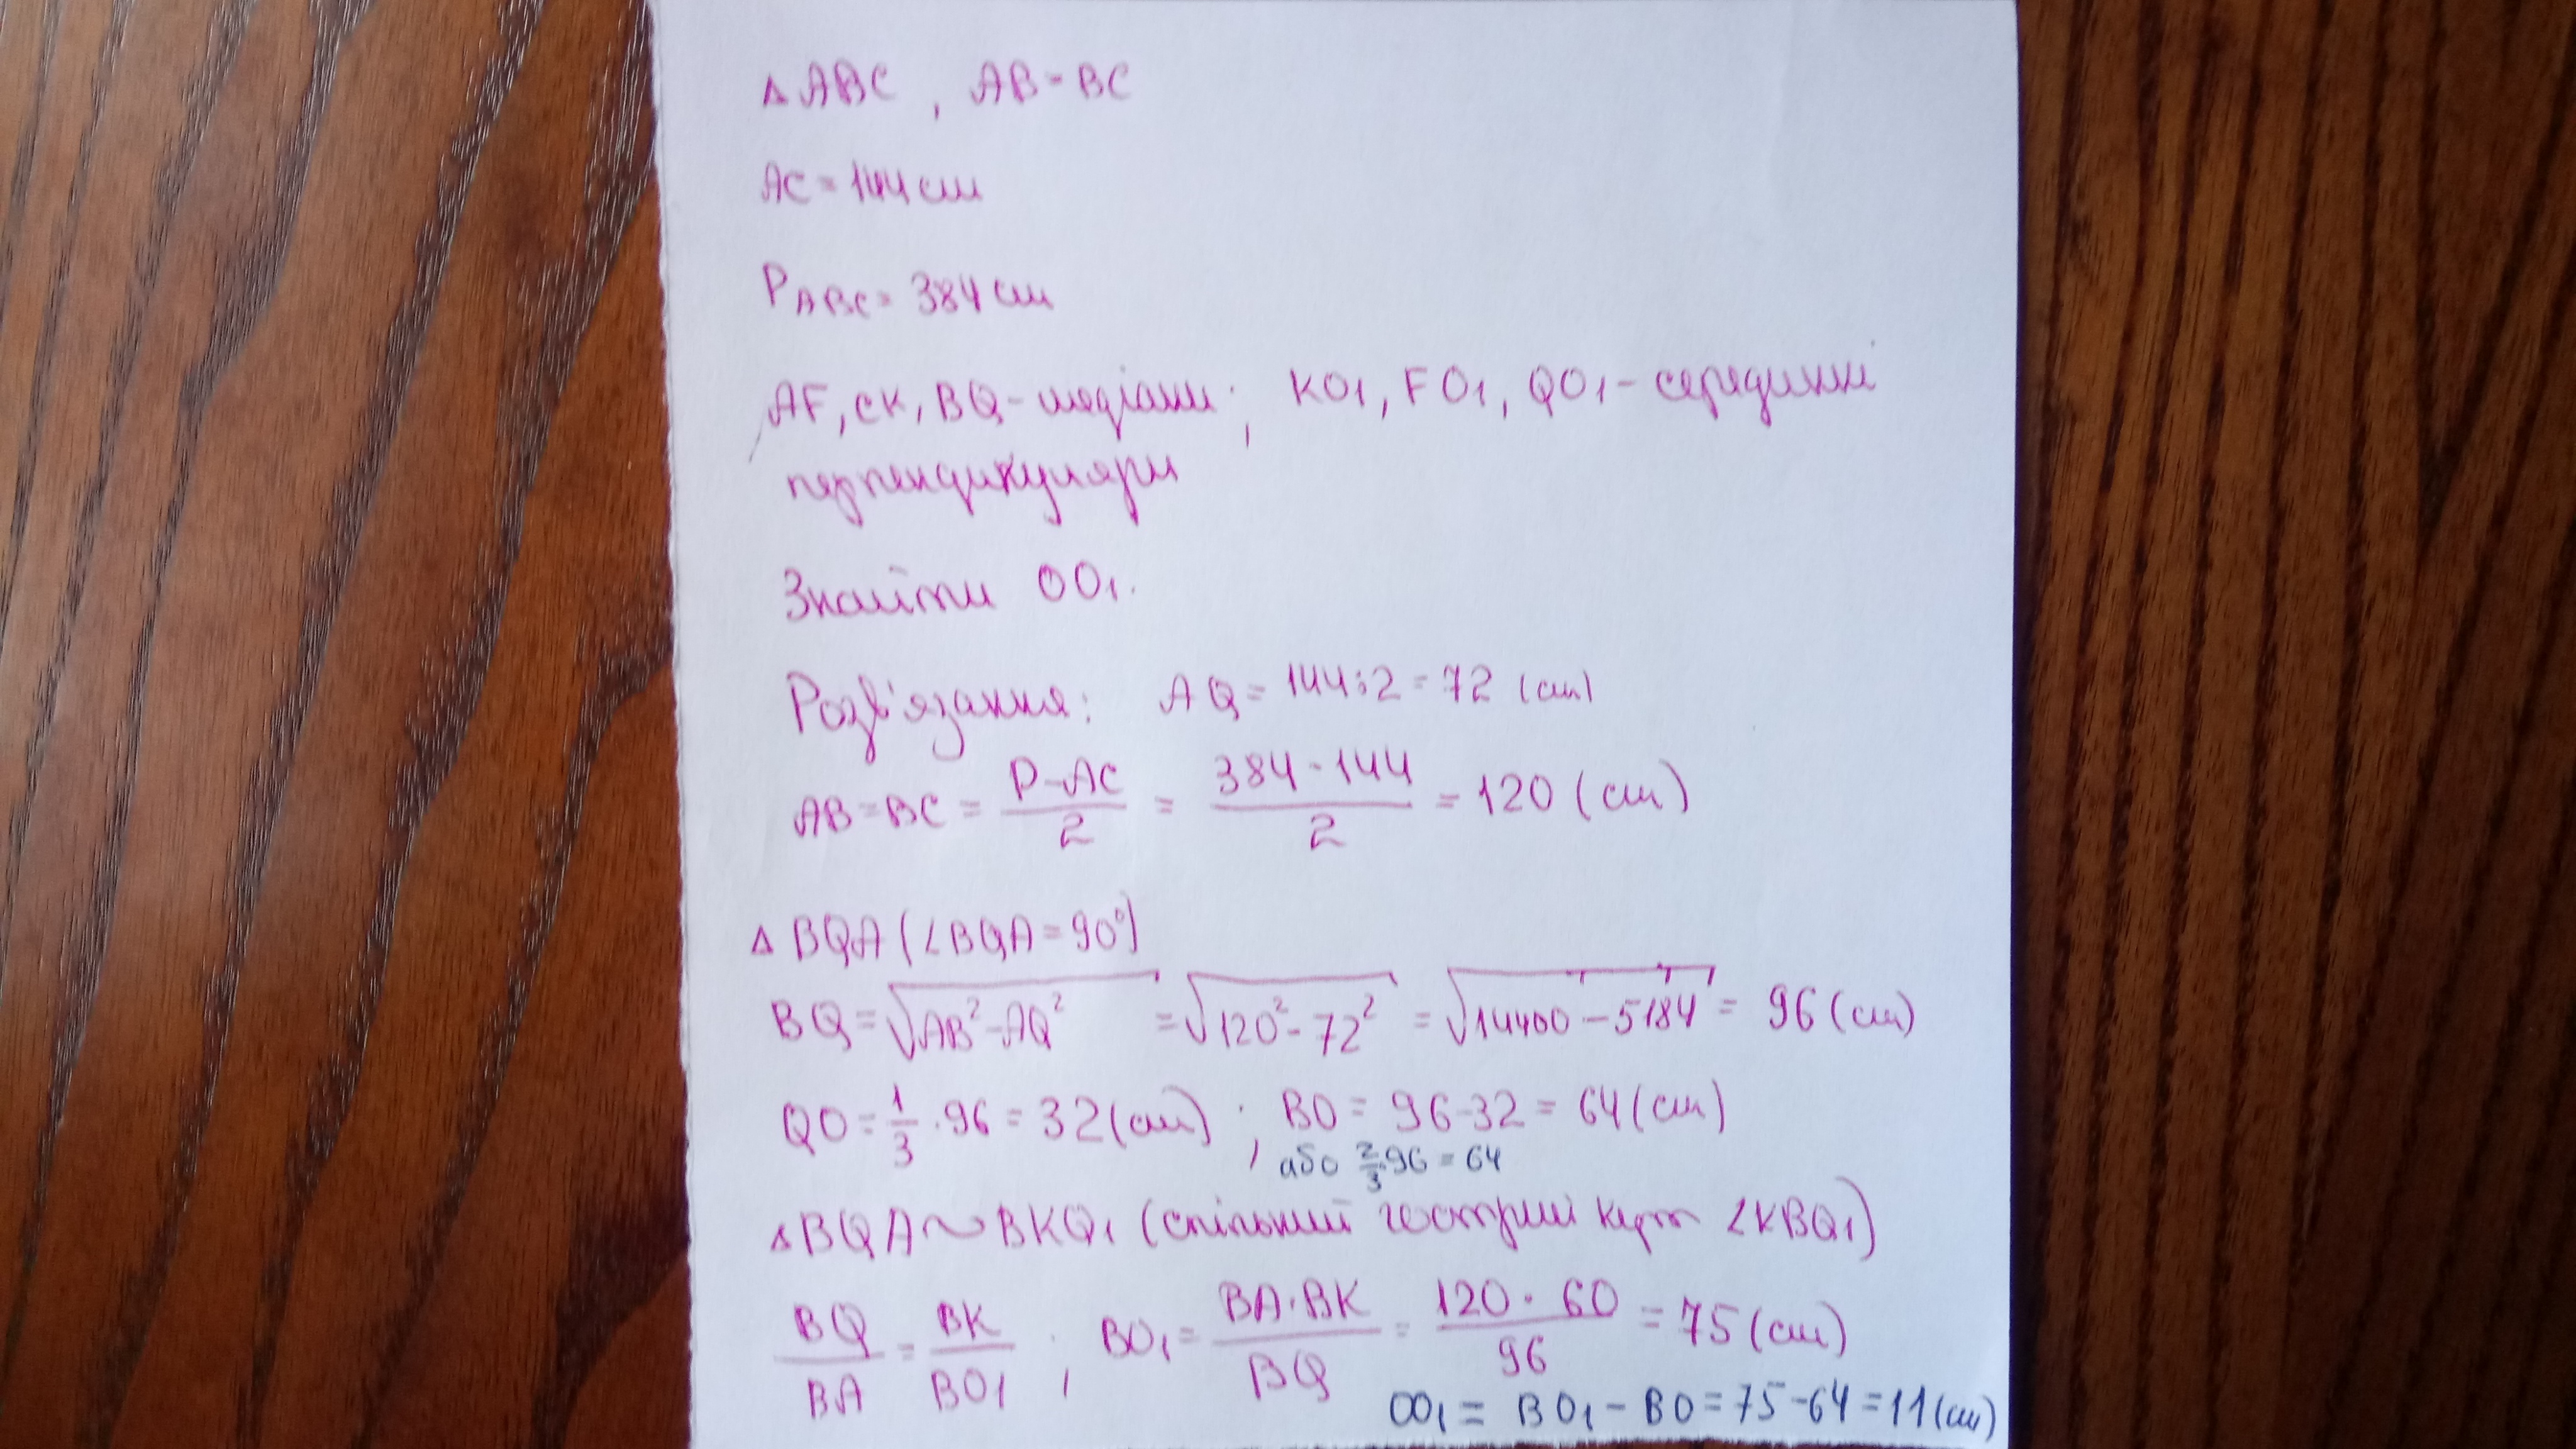 △ ABC , AB = BC
AC = 144 см
P ABC = 384 см
AF, CK, BQ - медіани ; KO1, FO1, QO1 - серединні
перпендикуляри
Знайти OO1.
Розв'язання: AQ = 144:2 = 72 (см)
AB = BC = (P-AC)/2 = (384-144)/2 = 120 (см)
△ BQA (∠BQA = 90°)
BQ = √(AB²-AQ²) = √(120²-72²) = √(14400-5184) = 96 (см)
QO = 1/3 · 96 = 32 (см) ; BO = 96-32 = 64 (см)
або 2/3·96 = 64
△ BQA ~ BKQ1 (спільний гострий кут ∠KBQ1)
BQ/BA = BK/BO1 ; BO1 = BA·BK/BQ = 120·60/96 = 75 (см)
OO1 = BO1 - BO = 75-64 = 11 (см)